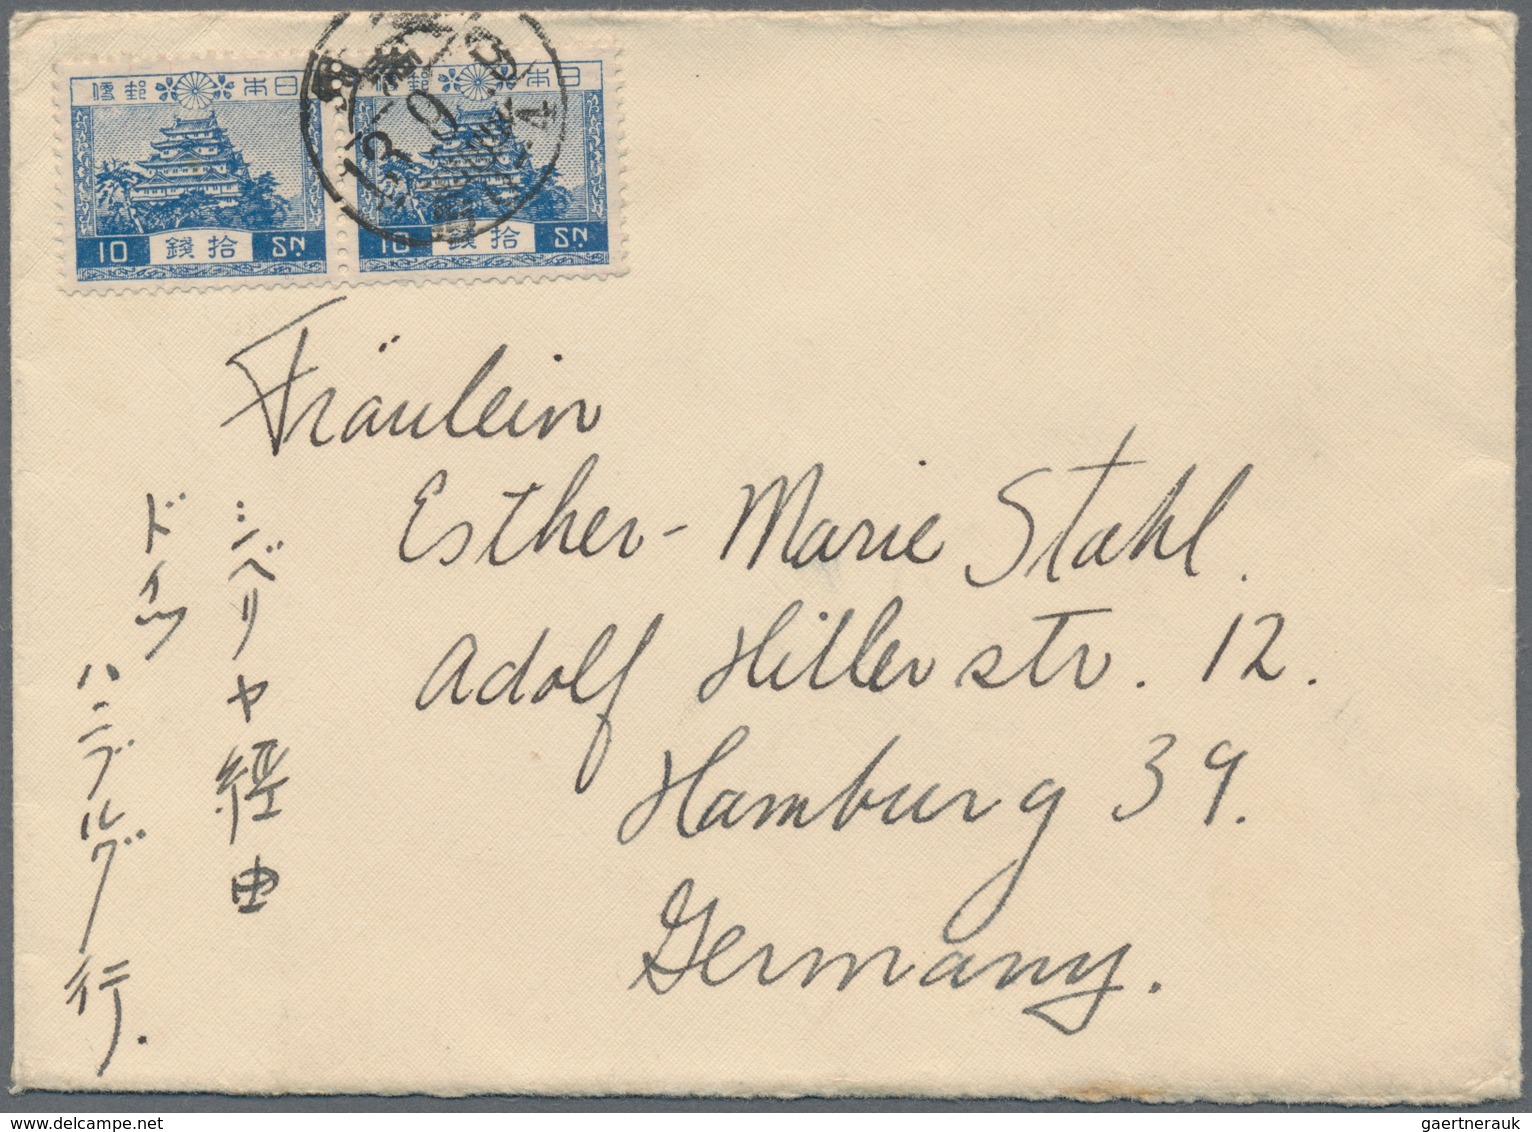 便郵 本日
便郵 本日
10 錢拾 SN.
10 錢拾 SN.
13 9
Fräulein
Esther-Marie Stahl.
Adolf Hitlerstr. 12.
Hamburg 39.
Germany.
シベリヤ経由
ドイツ
ハンブルグ行.
delcampe.net
gaertnerauk